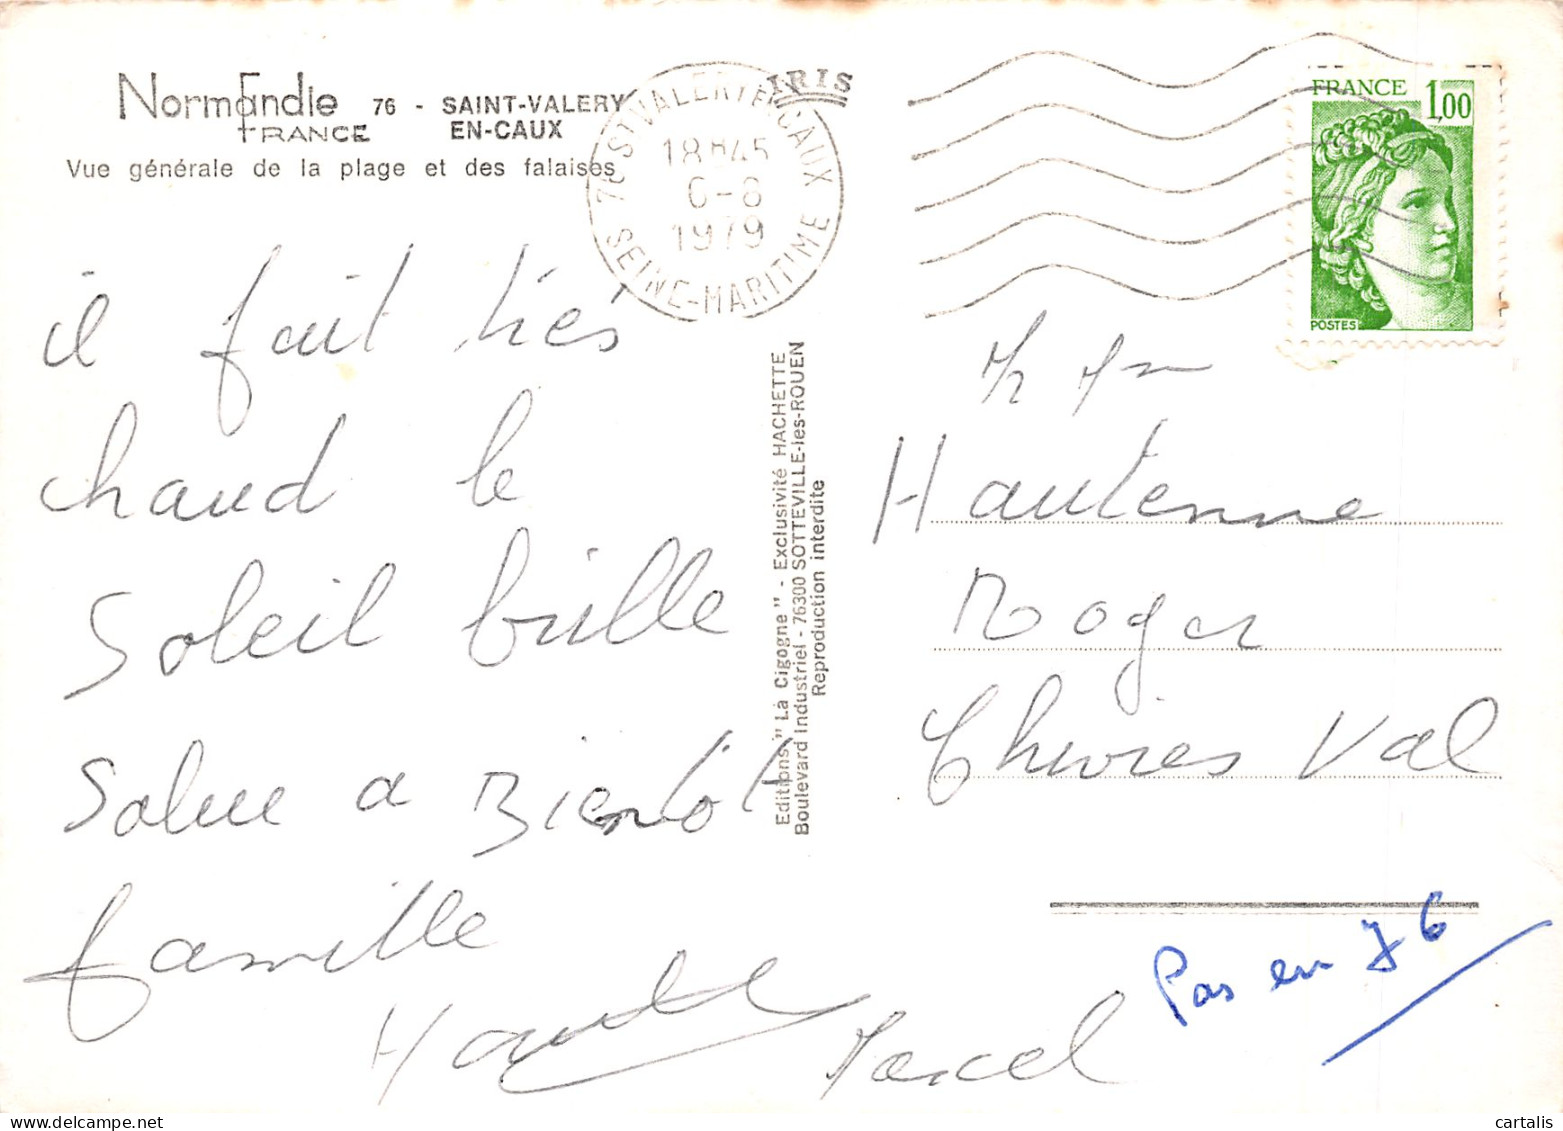 Normandie
FRANCE
76 - SAINT-VALERY
EN-CAUX
Vue générale de la plage et des falaises
IRIS
76 ST VALERY EN CAUX
18H45
6-8
1979
SEINE-MARITIME
FRANCE
1,00
POSTES
il fait très
chaud le
Soleil brille
Salue a Bientôt
famille
Marcel
Editions "La Cigogne" - Exclusivité HACHETTE
Boulevard Industriel - 76300 SOTTEVILLE-les-ROUEN
Reproduction interdite
Hautenne
Roger
Chivres Val
Pas en 76
cartalis